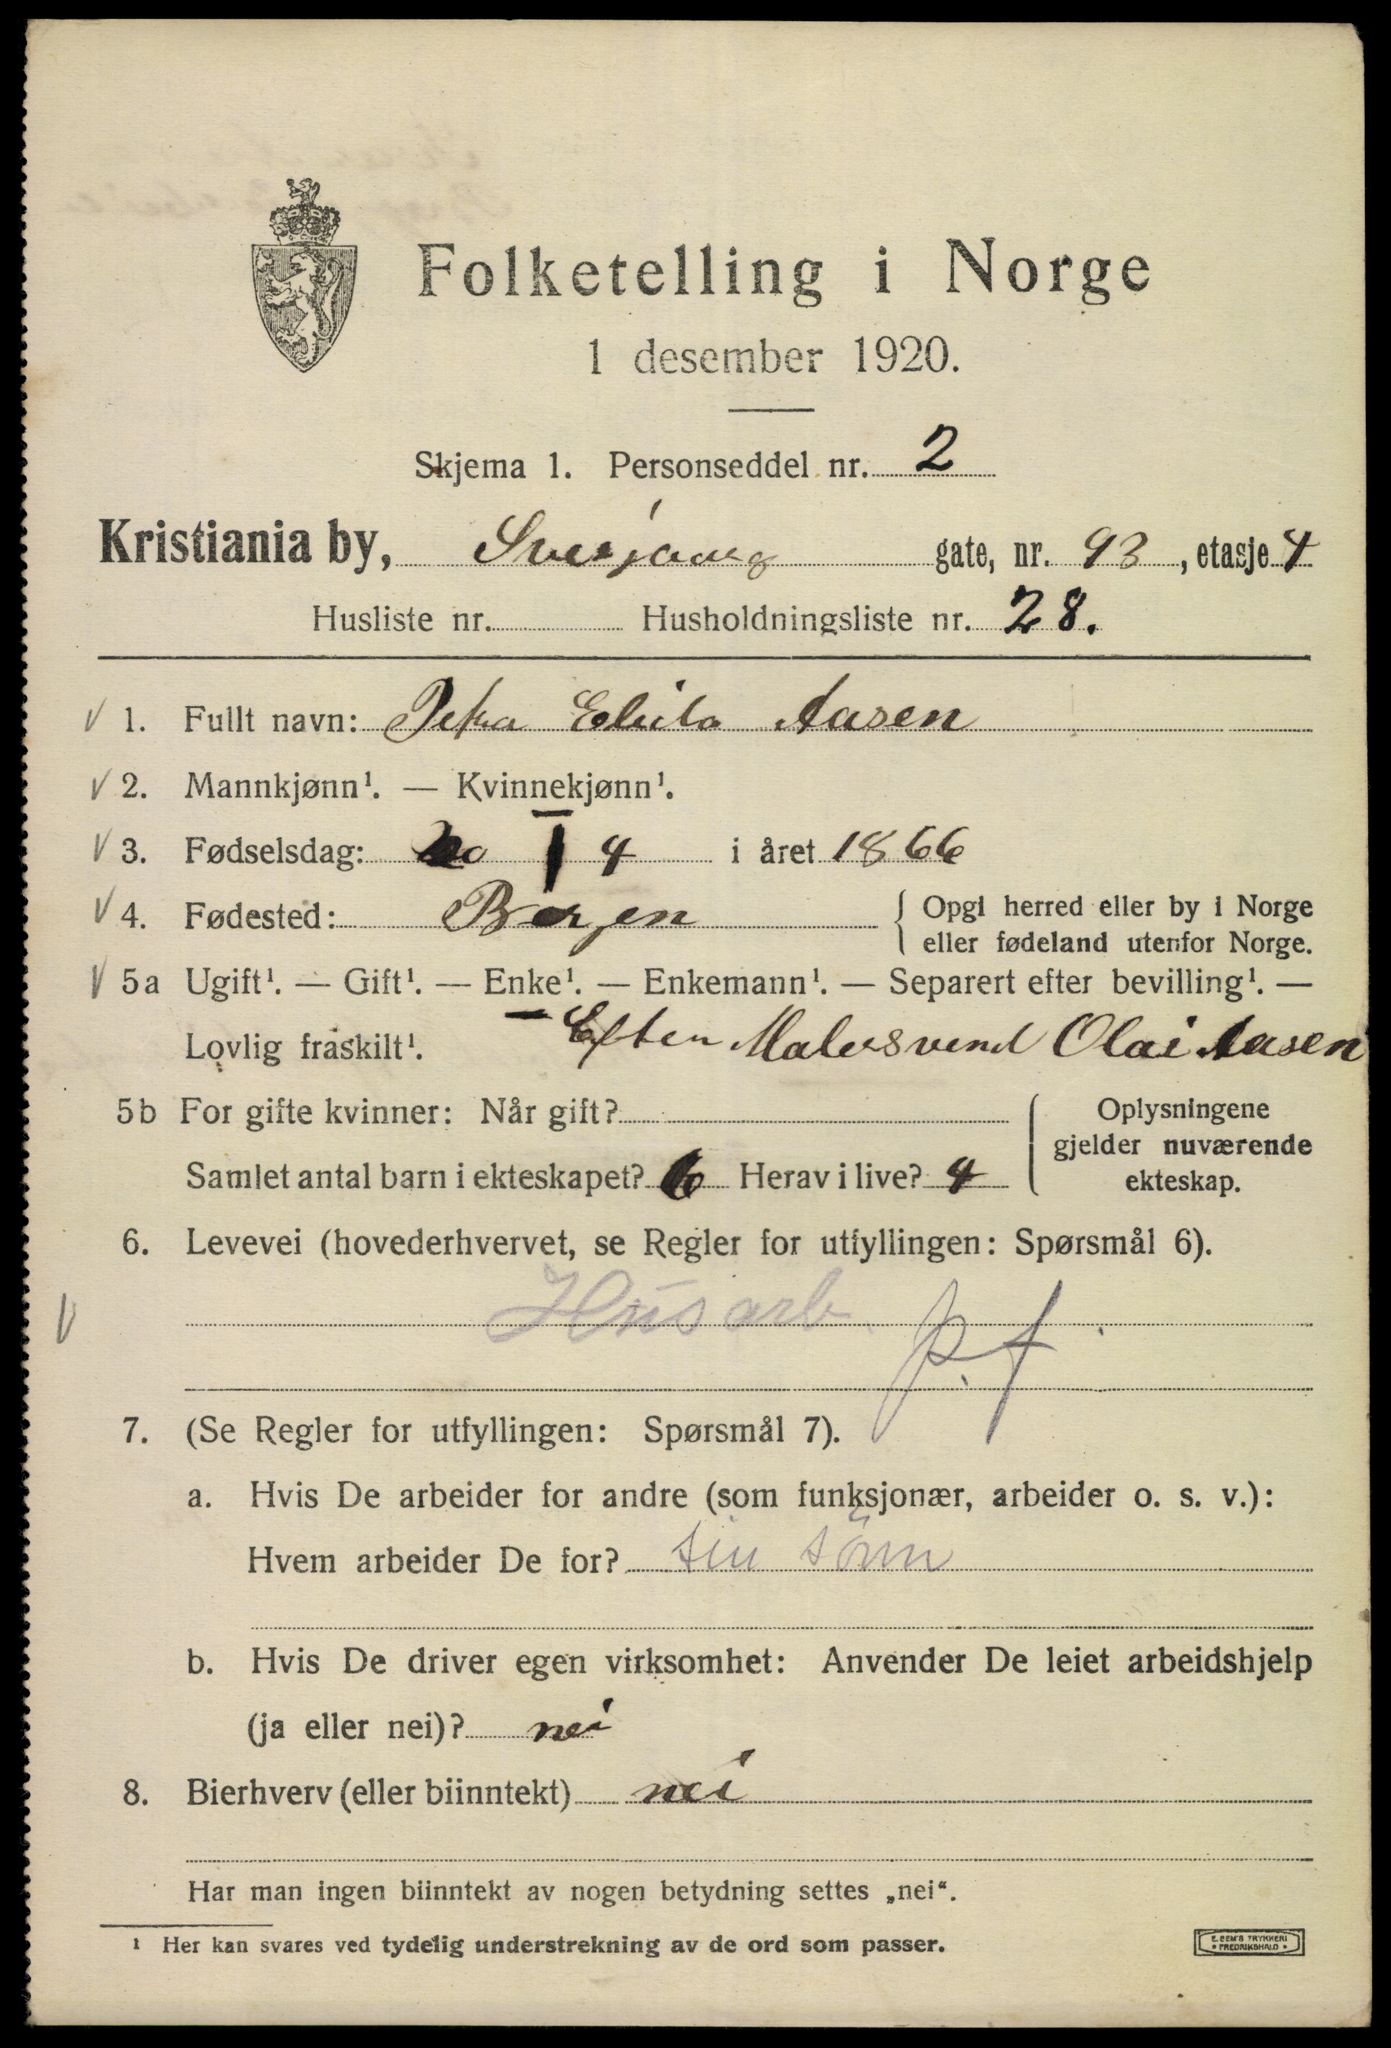 Folketelling i Norge
1 desember 1920.
Skjema 1. Personseddel nr. 2
Kristiania by, gate, nr. 93, etasje 4
Husliste nr. Husholdningsliste nr. 28.
V 1. Fullt navn: Petra Elida Aasen
V 2. Mannkjønn¹. — Kvinnekjønn¹.
V 3. Fødselsdag: 20 / 4 i året 1866
V 4. Fødested: Bergen { Opgi herred eller by i Norge
eller fødeland utenfor Norge.
V 5a Ugift¹. — Gift¹. — Enke¹. — Enkemann¹. — Separert efter bevilling¹. —
Lovlig fraskilt¹. Efter Malersvend Olai Aasen
5b For gifte kvinner: Når gift? { Oplysningene
gjelder nuværende
Samlet antal barn i ekteskapet? 6 Herav i live? 4 ekteskap.
6. Levevei (hovederhvervet, se Regler for utfyllingen: Spørsmål 6).
V Husarb. p.f
7. (Se Regler for utfyllingen: Spørsmål 7).
a. Hvis De arbeider for andre (som funksjonær, arbeider o. s. v.):
Hvem arbeider De for? sin sönn
b. Hvis De driver egen virksomhet: Anvender De leiet arbeidshjelp
(ja eller nei)? nei
8. Bierhverv (eller biinntekt) nei
Har man ingen biinntekt av nogen betydning settes „nei“.
¹ Her kan svares ved tydelig understrekning av de ord som passer.
E. SEM'S TRYKKERI
* FREDRIKSHALD *